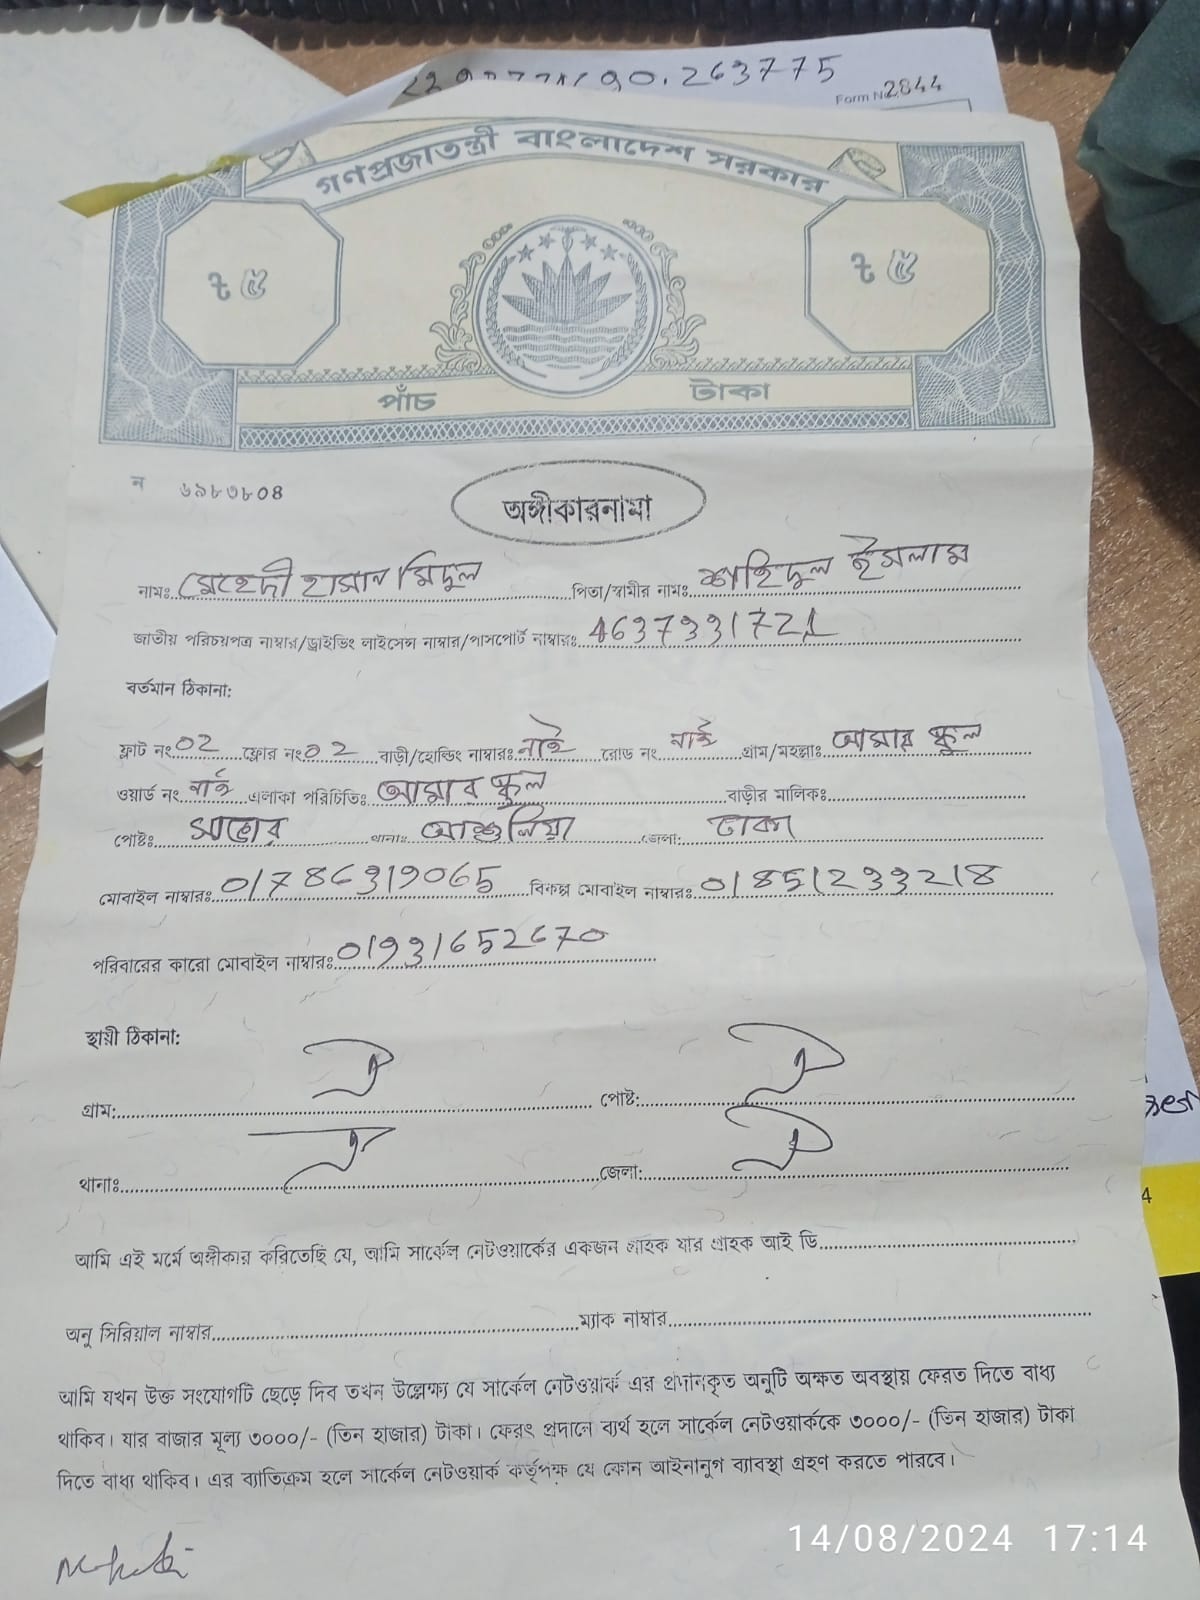 90.263775
Form No 2844
গণপ্রজাতন্ত্রী বাংলাদেশ সরকার
ট ৫ ট ৫
পাঁচ টাকা
ন ৬৯৮৩৮০৪
অঙ্গীকারনামা
নামঃ মেহেদী হাসান মিদুল পিতা/স্বামীর নামঃ শাহিদুল ইসলাম
জাতীয় পরিচয়পত্র নাম্বার/ড্রাইভিং লাইসেন্স নাম্বার/পাসপোর্ট নাম্বারঃ 4637331721
বর্তমান ঠিকানা:
ফ্লাট নং 02 ফ্লোর নং 02 বাড়ী/হোল্ডিং নাম্বারঃ নাই রোড নং নাই গ্রাম/মহল্লাঃ আমার স্কুল
ওয়ার্ড নং নাই এলাকা পরিচিতিঃ আমার স্কুল বাড়ীর মালিকঃ
পোষ্টঃ সাভার থানাঃ আশুলিয়া জেলা: ঢাকা
মোবাইল নাম্বারঃ 01786319065 বিকল্প মোবাইল নাম্বারঃ 01851233218
পরিবারের কারো মোবাইল নাম্বারঃ 01931652670
স্থায়ী ঠিকানা:
গ্রাম: ঐ পোষ্ট: ঐ
থানাঃ ঐ জেলা: ঐ
আমি এই মর্মে অঙ্গীকার করিতেছি যে, আমি সার্কেল নেটওয়ার্কের একজন গ্রাহক যার গ্রাহক আই ডি
অনু সিরিয়াল নাম্বার ম্যাক নাম্বার
আমি যখন উক্ত সংযোগটি ছেড়ে দিব তখন উল্লেক্ষ্য যে সার্কেল নেটওয়ার্ক এর প্রদানকৃত অনুটি অক্ষত অবস্থায় ফেরত দিতে বাধ্য
থাকিব। যার বাজার মূল্য ৩০০০/- (তিন হাজার) টাকা। ফেরৎ প্রদানে ব্যর্থ হলে সার্কেল নেটওয়ার্ককে ৩০০০/- (তিন হাজার) টাকা
দিতে বাধ্য থাকিব। এর ব্যাতিক্রম হলে সার্কেল নেটওয়ার্ক কর্তৃপক্ষ যে কোন আইনানুগ ব্যাবস্থা গ্রহণ করতে পারবে।
14/08/2024 17:14